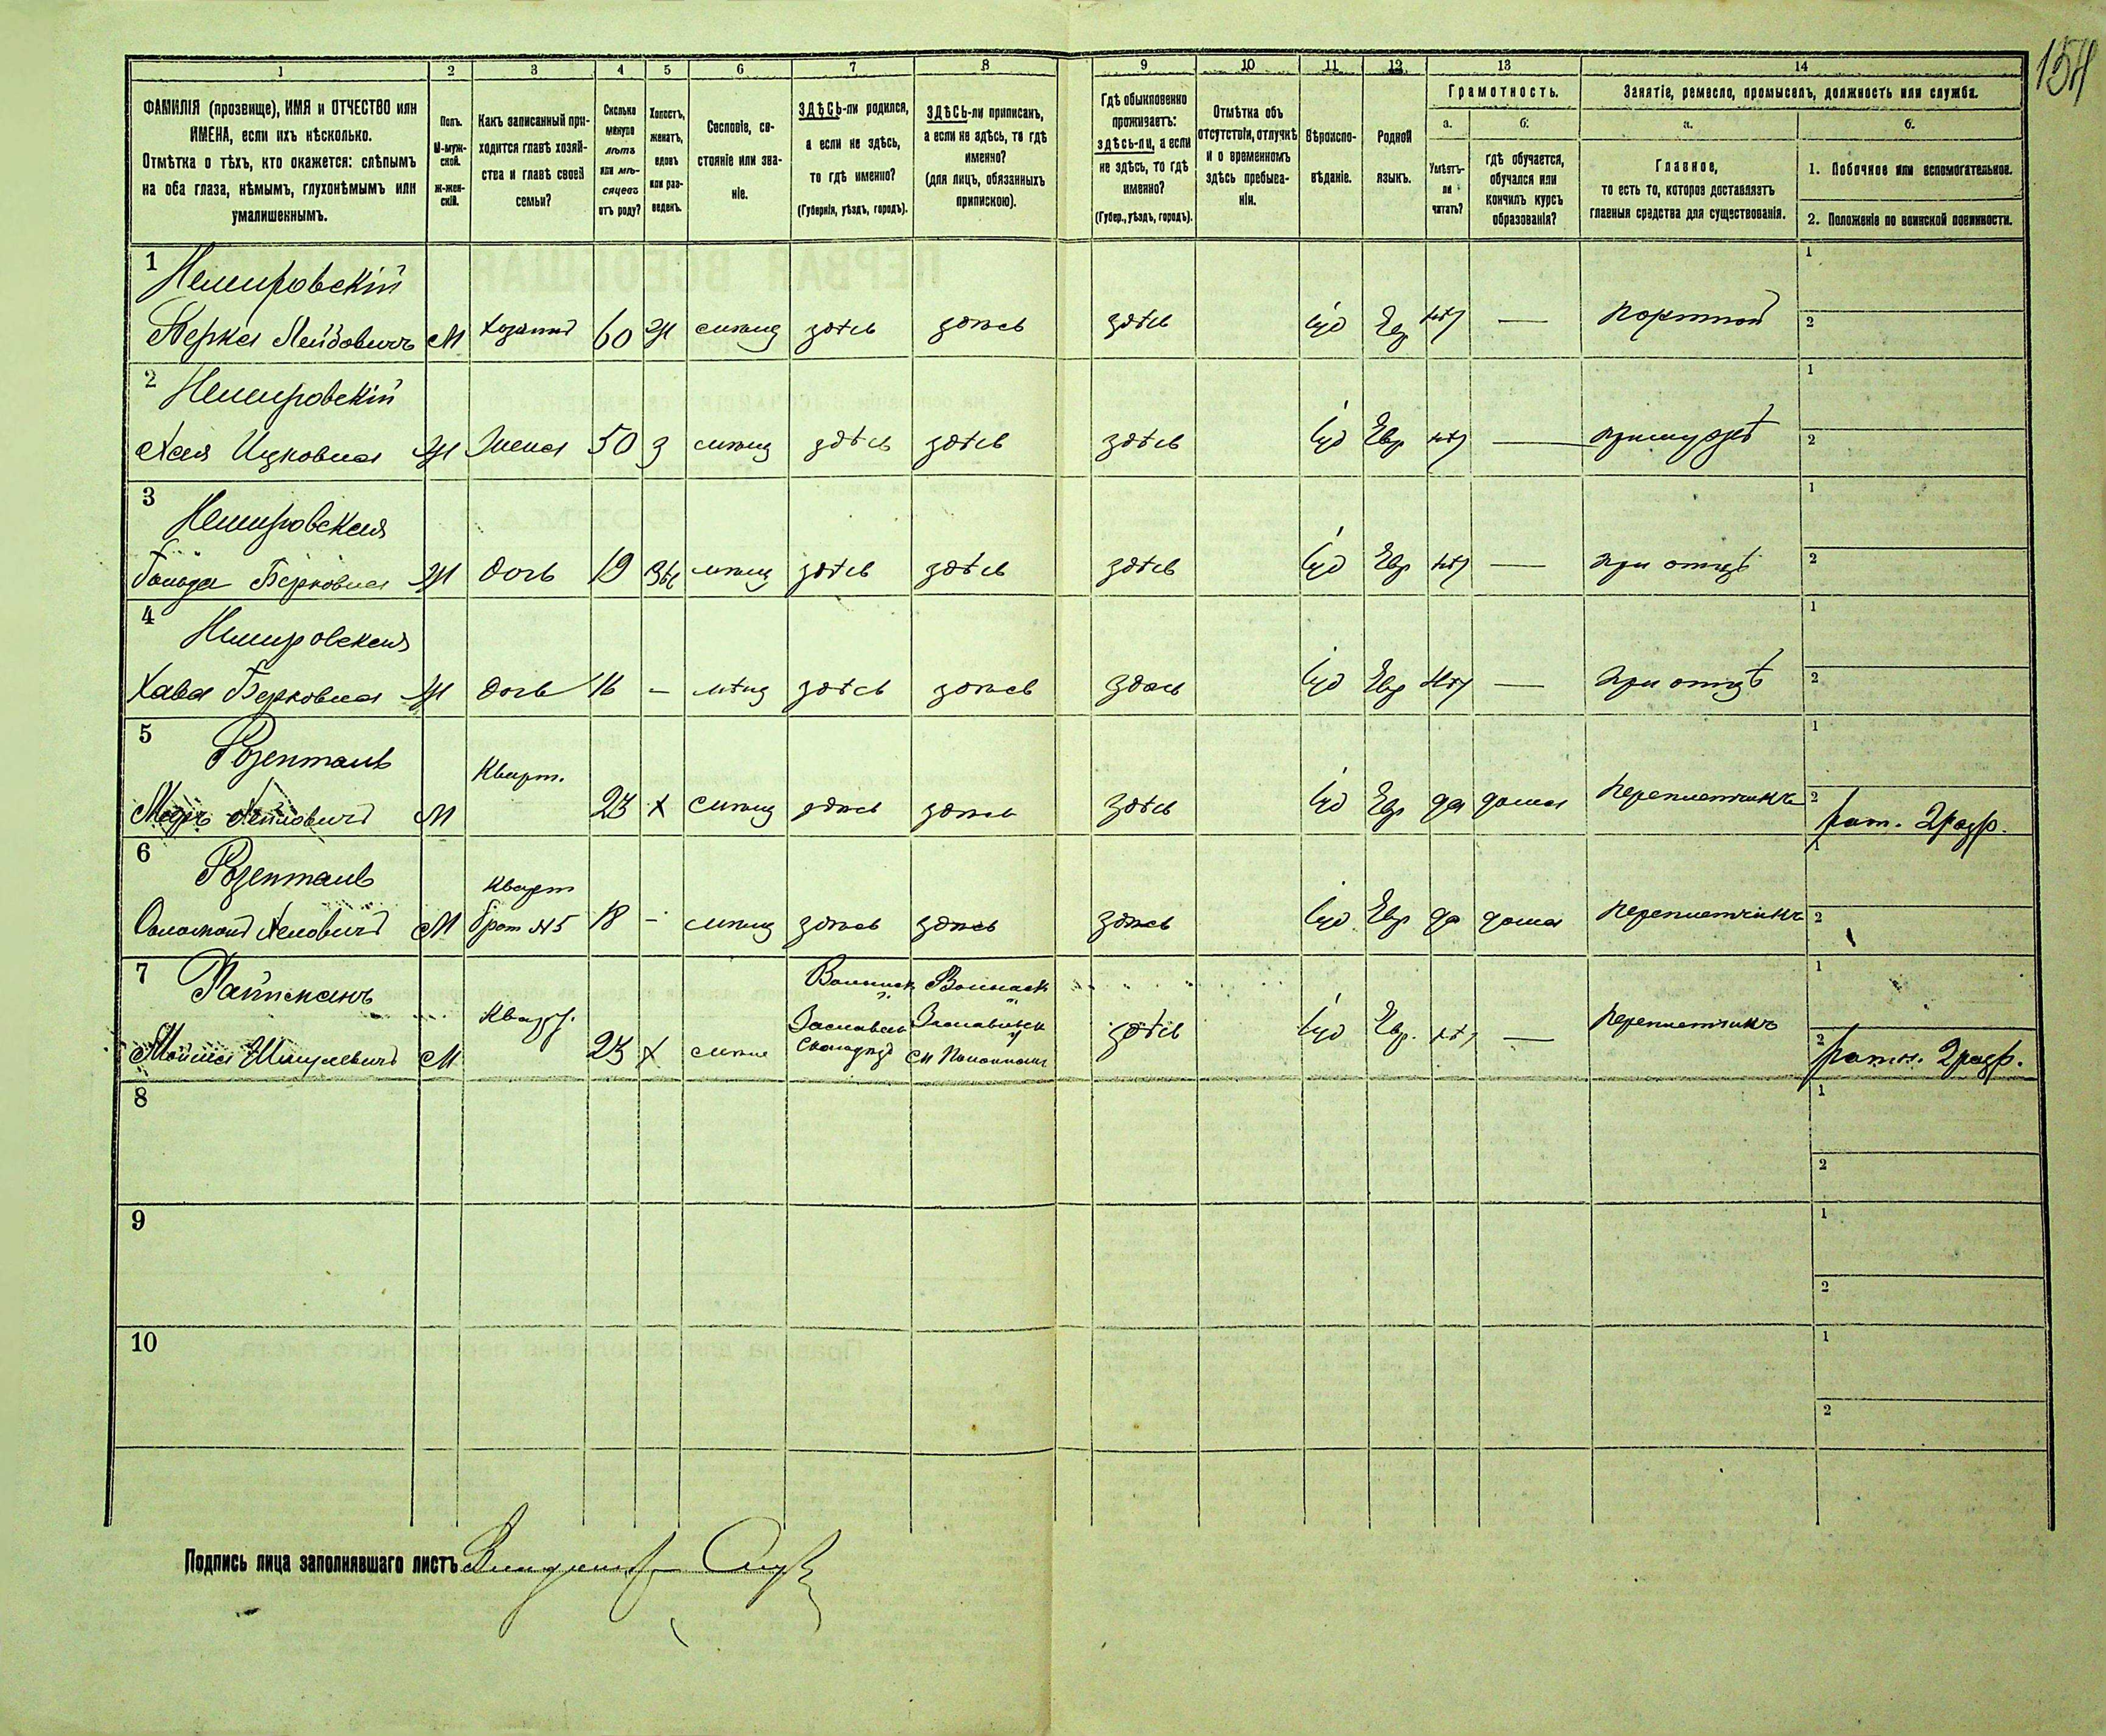 154
1 2 3 4 5 6 7 8 9 10 11 12 13 14
ФАМИЛІЯ (прозвище), ИМЯ и ОТЧЕСТВО или
ИМЕНА, если ихъ нѣсколько.
Отмѣтка о тѣхъ, кто окажется: слѣпымъ
на оба глаза, нѣмымъ, глухонѣмымъ или
умалишеннымъ.
Полъ.
М-муж-
ской.
Ж-жен-
скій.
Какъ записанный при-
ходится главѣ хозяй-
ства и главѣ своей
семьи?
Сколько
минуло
лѣтъ
или мѣ-
сяцевъ
отъ роду?
Холостъ,
женатъ,
вдовъ
или раз-
веденъ.
Сословіе, со-
стояніе или зва-
ніе.
ЗДѢСЬ-ли родился,
а если не здѣсь,
то гдѣ именно?
(Губернія, уѣздъ, городъ).
ЗДѢСЬ-ли приписанъ,
а если не здѣсь, то гдѣ
именно?
(для лицъ, обязанныхъ
припискою).
Гдѣ обыкновенно
проживаетъ:
здѣсь-ли, а если
не здѣсь, то гдѣ
именно?
(Губер., уѣздъ, городъ).
Отмѣтка объ
отсутствіи, отлучкѣ
и о временномъ
здѣсь пребыва-
ніи.
Вѣроиспо-
вѣданіе.
Родной
языкъ.
Грамотность.
а.
Умѣетъ-
ли
читать?
б.
гдѣ обучается,
обучался или
кончилъ курсъ
образованія?
Занятіе, ремесло, промыселъ, должность или служба.
а.
Главное,
то есть то, которое доставляетъ
главныя средства для существованія.
б.
1. Побочное или вспомогательное.
2. Положеніе по воинской повинности.
1 Немировскій
Берка Лейбовичъ М Хозяинъ 60 Ж здѣсь здѣсь здѣсь Іуд Ев нѣт — портной
1
2
2 Немировскій
Хая Ицковна Ж Жена 50 З здѣсь здѣсь здѣсь Іуд Евр нѣт — при мужѣ
1
2
3 Немировская
Гольда Берковна Ж дочь 19 мѣщ здѣсь здѣсь здѣсь Іуд Евр нѣт — при отцѣ
1
2
4 Немировская
Хава Берковна Ж дочь 16 — мѣщ здѣсь здѣсь здѣсь Іуд Евр нѣт — при отцѣ
1
2
5 Розенталь
М Кварт. 23 х мѣщ здѣсь здѣсь здѣсь Іуд Евр да дома переплетчикъ
1
2 рат. 2 разр.
6 Розенталь
М Кварт
брат №5 18 - мѣщ здѣсь здѣсь здѣсь Іуд Евр да дома переплетчикъ
1
2
7
Шмулевичъ М Кварт. 23 х здѣсь Іуд Евр. нѣт — переплетчикъ
1
2 ратн. 2 разр.
8
1
2
9
1
2
10
1
2
Подпись лица заполнявшаго листъ